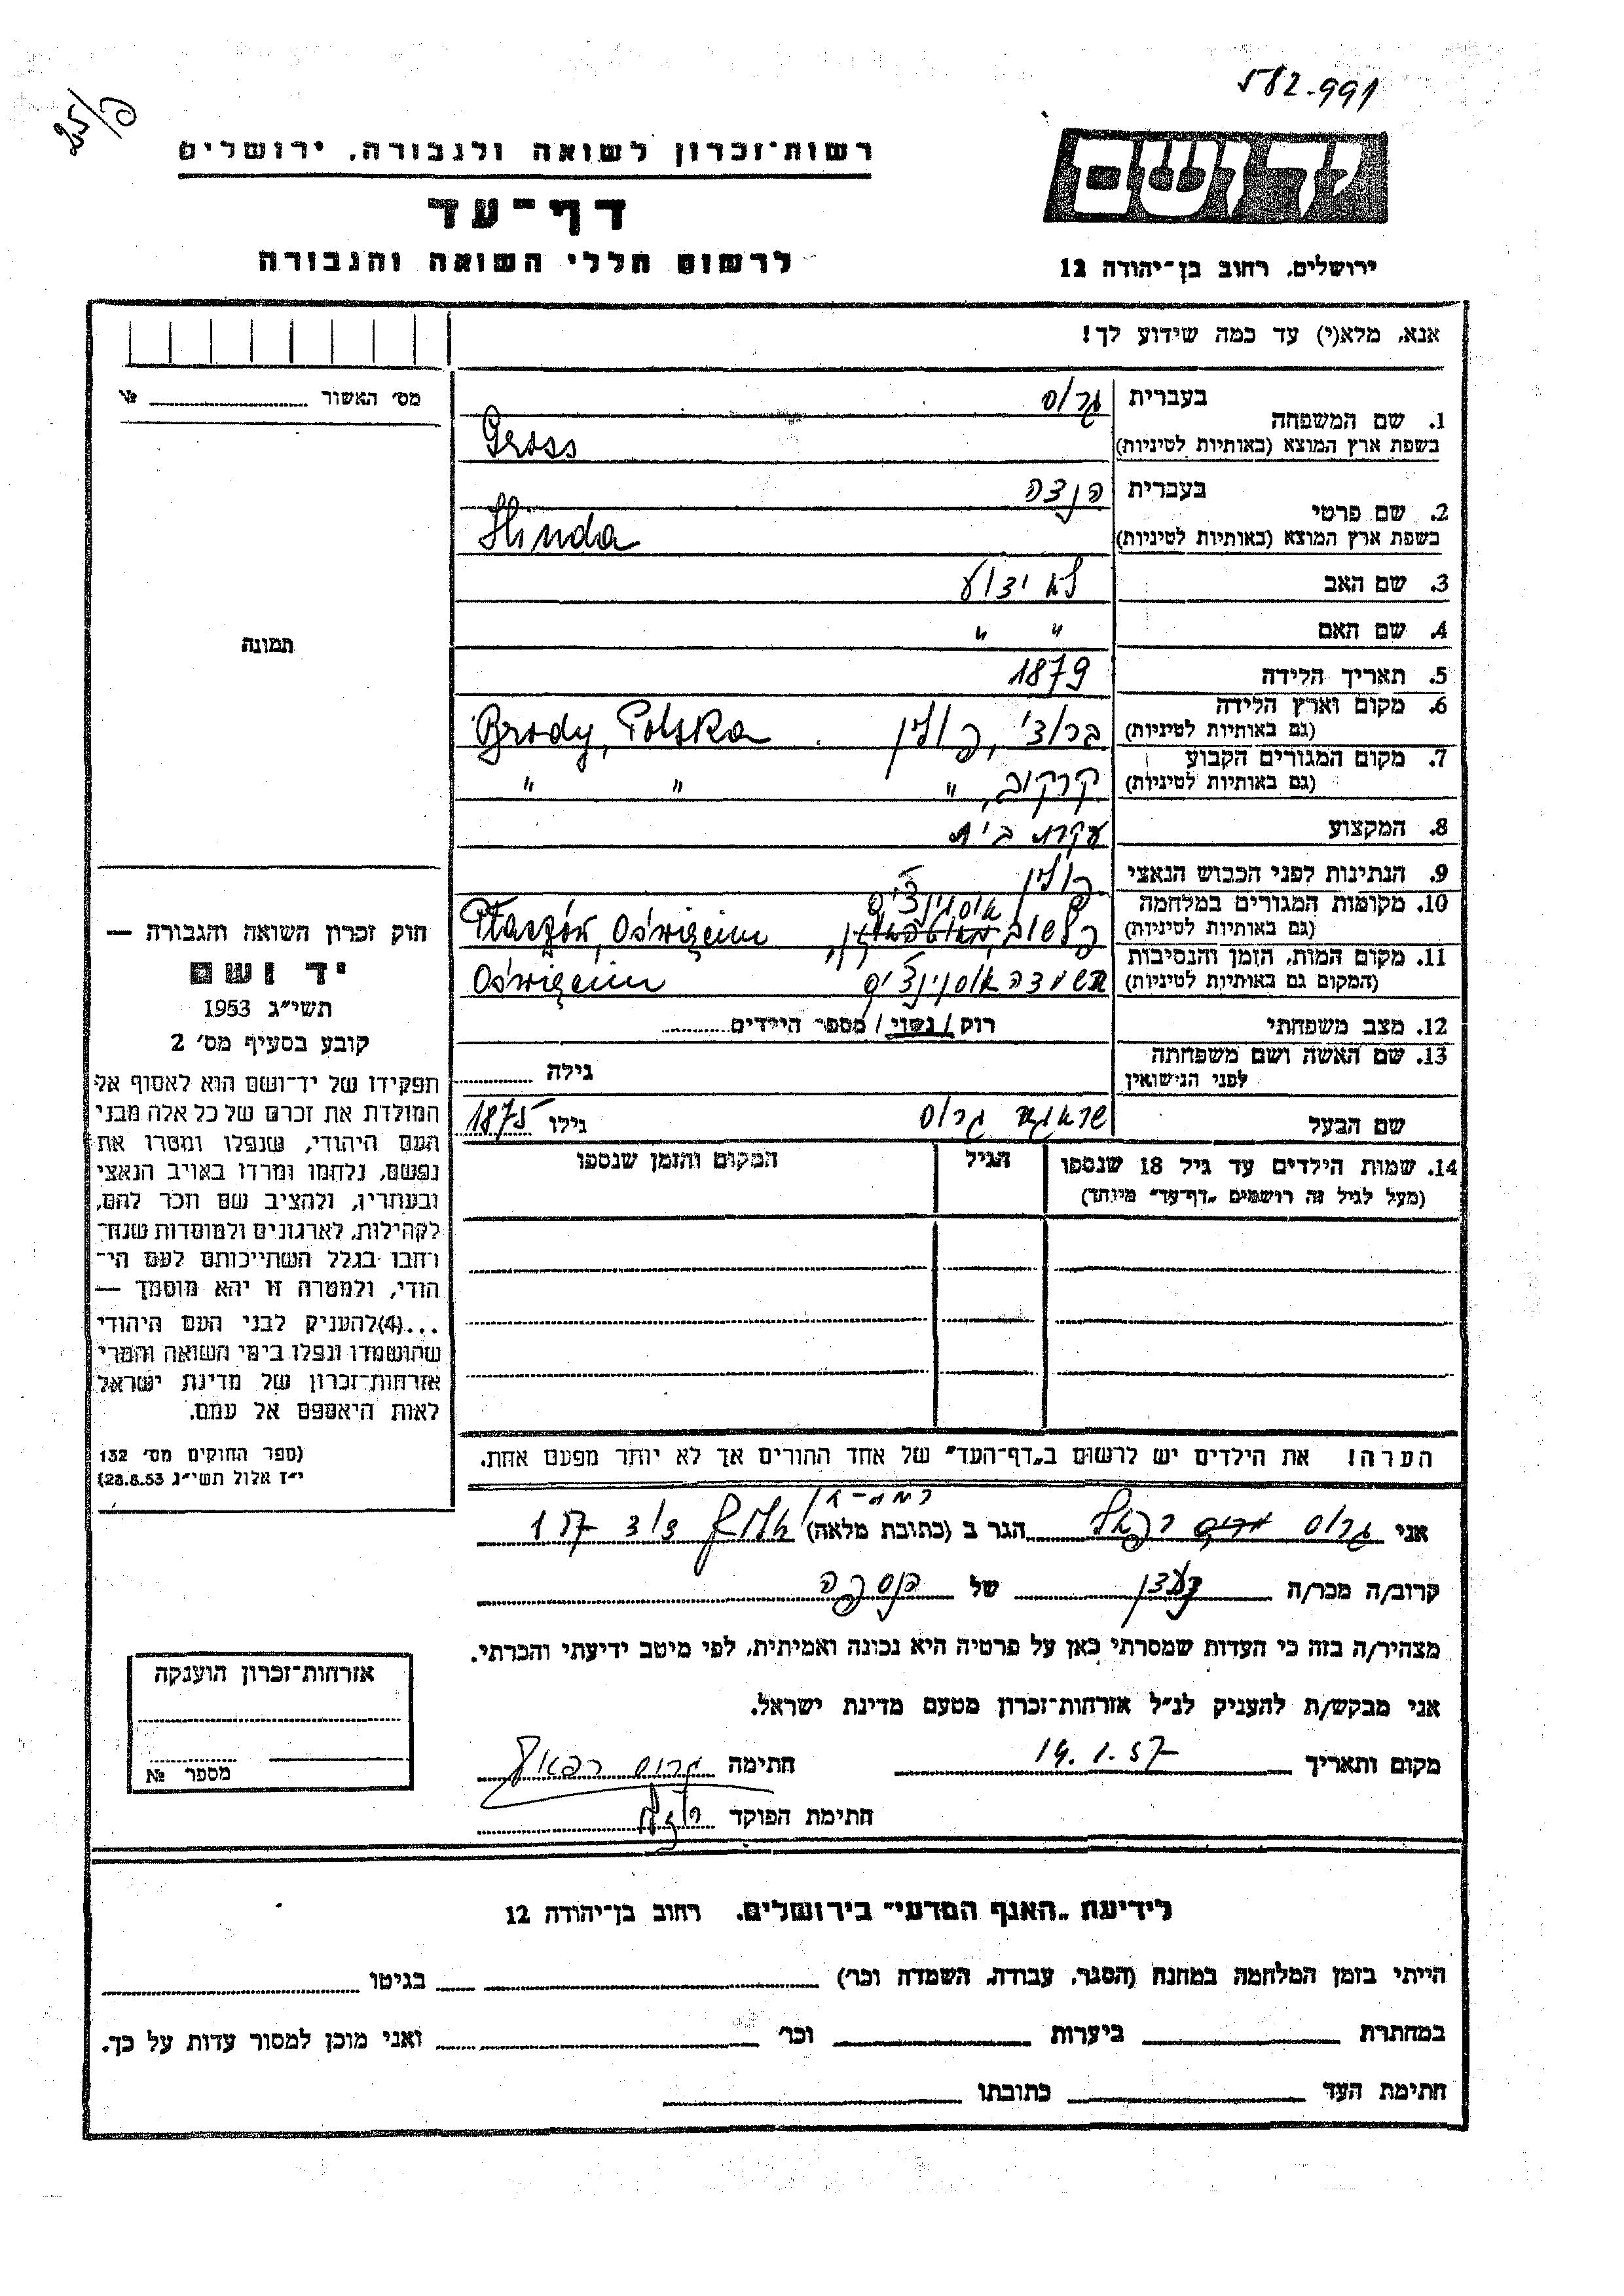 582-991
25/ פ
רשות־זכרון לשואה ולגבורה, ירושלים
דף־עד
לרשום חללי השואה והגבורה
יד ושם
ירושלים, רחוב בן־יהודה 12
אנא, מלא(י) עד כמה שידוע לך!
מס׳ האשור № 
1. שם המשפחה בעברית גרוס
בשפת ארץ המוצא (באותיות לטיניות) Gross
2. שם פרטי בעברית הנדה
בשפת ארץ המוצא (באותיות לטיניות) Hinda
3. שם האב לא ידוע
4. שם האם " "
5. תאריך הלידה 1879
6. מקום וארץ הלידה (גם באותיות לטיניות) ברודי, פולין Brody, Polska
7. מקום המגורים הקבוע (גם באותיות לטיניות) קרקוב, " " "
8. המקצוע עקרת בית
9. הנתינות לפני הכבוש הנאצי פולין
10. מקומות המגורים במלחמה (גם באותיות לטיניות) פלשוב, אוסוינצ'ים Płaszów, Oświęcim
11. מקום המות, הזמן והנסיבות (המקום גם באותיות לטיניות) השמדה אוסוינצ'ים Oświęcim
12. מצב משפחתי רוק / נשוי / מספר הילדים
13. שם האשה ושם משפחתה לפני הנישואין גילה
שם הבעל שראגא גרוס גילו 1875
14. שמות הילדים עד גיל 18 שנספו (מעל לגיל זה רושמים „דף־עד" מיוחד) הגיל המקום והזמן שנספו
תמונה
חוק זכרון השואה והגבורה —
יד ושם
תשי״ג 1953
קובע בסעיף מס׳ 2
תפקידו של יד־ושם הוא לאסוף אל
המולדת את זכרם של כל אלה מבני
העם היהודי, שנפלו ומסרו את
נפשם, נלחמו ומרדו באויב הנאצי
ובעוזריו, ולהציב שם וזכר להם,
לקהילות, לארגונים ולמוסדות שנח־
רחבו בגלל השתייכותם לעם הי־
הודי, ולמטרה זו יהא מוסמך —
...(4)להעניק לבני העם היהודי
שהושמדו ונפלו בימי השואה והמרי
אזרחות־זכרון של מדינת ישראל
לאות היאספם אל עמם.
(ספר החוקים מס׳ 132
י״ז אלול תשי״ג 28.8.53)
הערה! את הילדים יש לרשום ב„דף־העד" של אחד ההורים אך לא יותר מפעם אחת.
רמת-גן
אני גרוס רפאל הגר ב (כתובת מלאה)
קרוב/ה מכר/ה של
מצהיר/ה בזה כי העדות שמסרתי כאן על פרטיה היא נכונה ואמיתית, לפי מיטב ידיעתי והכרתי.
אני מבקש/ת להעניק לנ״ל אזרחות־זכרון מטעם מדינת ישראל.
מקום ותאריך 19.1.57 חתימה גרוס רפאל
חתימת הפוקד
אזרחות־זכרון הוענקה
מספר №
לידיעת „האגף המדעי" בירושלים, רחוב בן־יהודה 12
הייתי בזמן המלחמה במחנה (הסגר, עבודה, השמדה וכר׳) בגיטו
במחתרת ביערות וכר׳ ואני מוכן למסור עדות על כך.
חתימת העד כתובתו